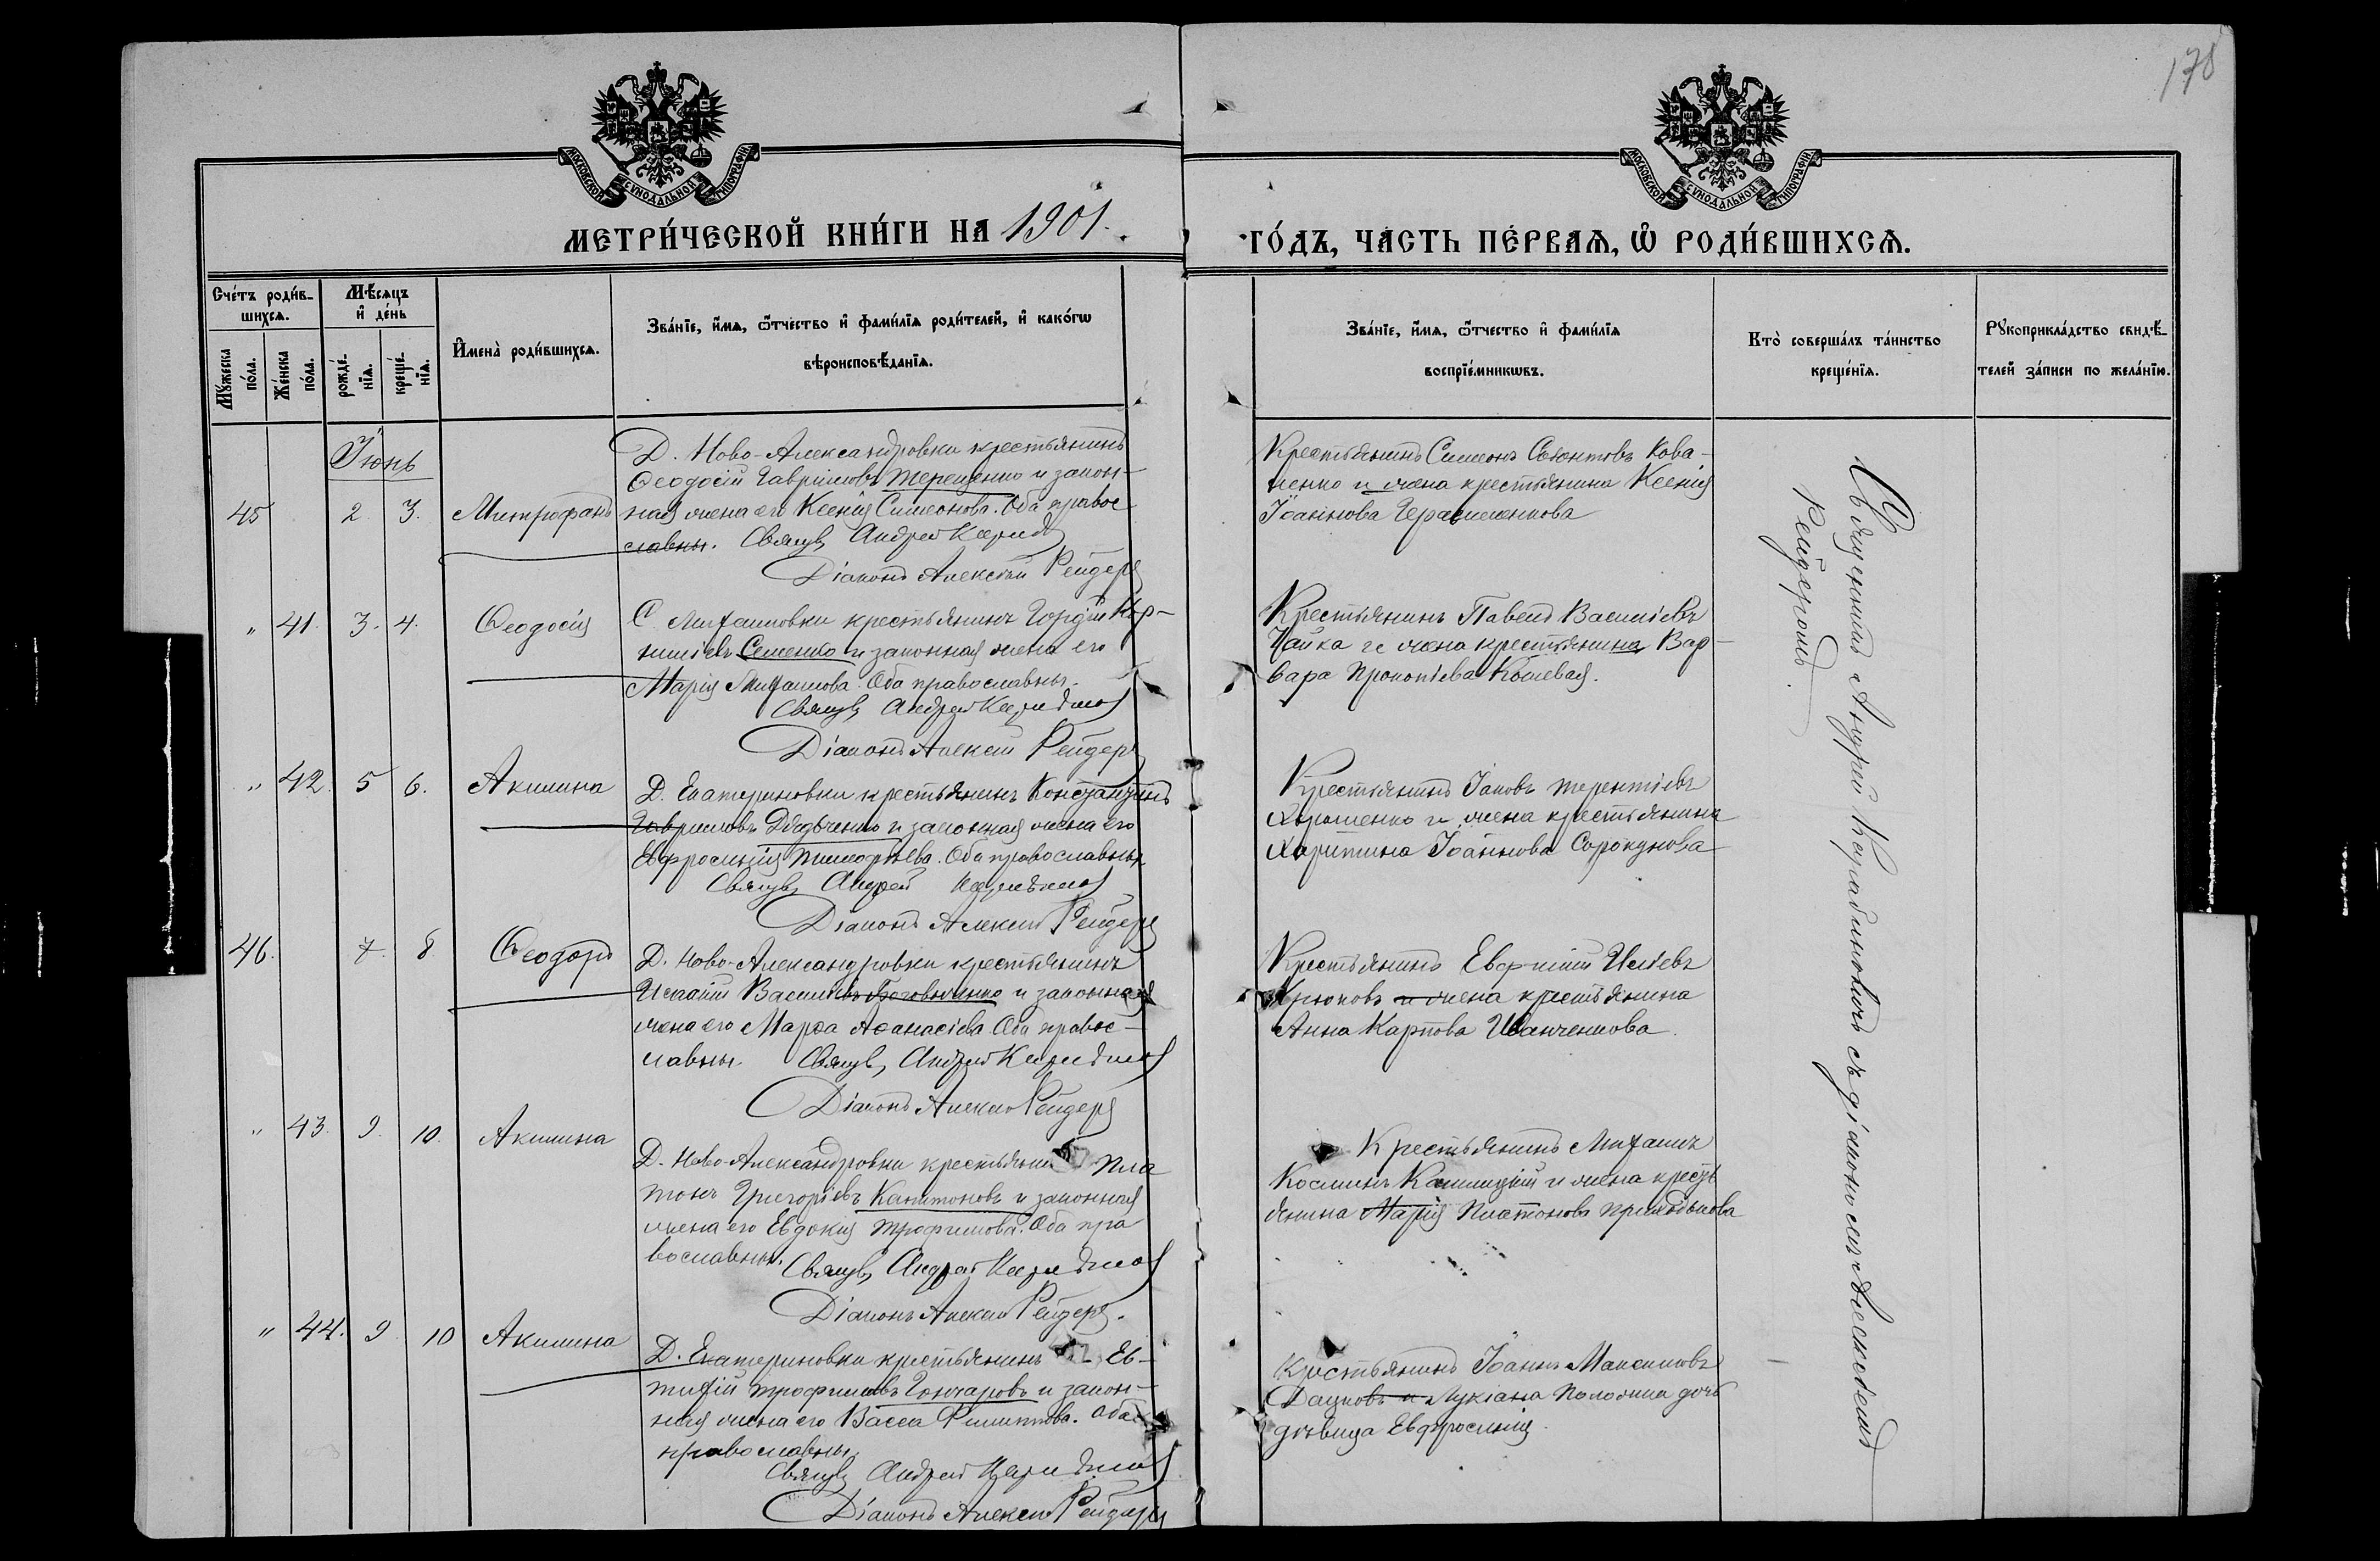 178
МОСКОВСКОЙ СУНОДАЛЬНОЙ ТИПОГРАФІИ
МОСКОВСКОЙ СУНОДАЛЬНОЙ ТИПОГРАФІИ
МЕТРИ́ЧЕСКОЙ КНИ́ГИ НА 1901.
ГО́ДЪ, ЧА́СТЬ ПЕ́РВАѦ, Ѡ҆ РОДИ́ВШИХСѦ.
Сче́тъ роди́в-
шихсѧ.
Мѣ́сѧцъ
и҆ де́нь
Мꙋ́жеска
по́ла.
Же́нска
по́ла.
рожде́-
нїѧ.
креще́-
нїѧ.
И҆мена̀ роди́вшихсѧ.
Зва́нїе, и҆́мѧ, ѻ҆́тчество и҆ фами́лїѧ роди́телей, и҆ како́гѡ
вѣроисповѣ́данїѧ.
Зва́нїе, и҆́мѧ, ѻ҆́тчество и҆ фами́лїѧ
воспрїе́мникѡвъ.
Кто̀ соверша́лъ та́инство
креще́нїѧ.
Рꙋкоприкла́дство свидѣ́-
телей за́писи по жела́нїю.
Іюнь
45 2. 3. Митрофанъ
Д. Ново-Александровки крестьянинъ
Ѳеодосій Гавріиловъ Терещенко и закон-
ная жена его Ксенія Симеонова. Оба право
славны. Свящ. Андрей
Діаконъ Алексѣй Рейдеръ
Крестьянинъ Симеонъ Кова-
ленко и жена крестьянина Ксенія
Іоаннова Герасименкова
" 41. 3. 4. Ѳеодосія
С. Михайловки крестьянинъ Гордій Кор-
ниліевъ Семенко и законная жена его
Марія Михайлова. Оба православны.
Свящ. Андрей
Діаконъ Алексѣй Рейдеръ
Крестьянинъ Павелъ Василіевъ
Чайка и жена крестьянина Вар-
вара Прокопіева Кошевая.
" 42. 5 6. Акилина
Д. Екатериновки крестьянинъ Константинъ
Гавриловъ и законная жена его
Евфросинія Тимофѣева. Оба православны.
Свящ. Андрей
Діаконъ Алексѣй Рейдеръ
Крестьянинъ Іаковъ Терентіевъ
Хорошенко и жена крестьянина
Харитина Іоаннова
46. 7. 8. Ѳеодоръ
Д. Ново-Александровки крестьянинъ
Исаакій Василіевъ и законная
жена его Марѳа Аѳанасіева. Оба право-
славны. Свящ. Андрей
Діаконъ Алексѣй Рейдеръ
Крестьянинъ Евфимій Иліевъ
Крюковъ и жена крестьянина
Анна Карпова Иванченкова.
" 43. 9. 10. Акилина
Д. Ново-Александровки крестьянинъ Пла
тонъ Григоріевъ Капитоновъ и законная
жена его Евдокія Трофимова. Оба пра
вославны. Свящ. Андрей
Діаконъ Алексѣй Рейдеръ.
Крестьянинъ Михаилъ
Косминъ и жена кресть
янина Марія Платонова Приходькова
" 44. 9 10 Акилина
Д. Екатериновки крестьянинъ Ев-
тихій Трофимовъ Гончаровъ и закон-
ная жена его Васса Филиппова. Оба
православны.
Свящ. Андрей
Діаконъ Алексѣй Рейдеръ
Крестьянинъ Іоаннъ Максимовъ
Дацковъ и Лукіана дочь
дѣвица Евфросинія.
Священникъ Андрей съ діакономъ Алексѣемъ
Рейдеромъ.